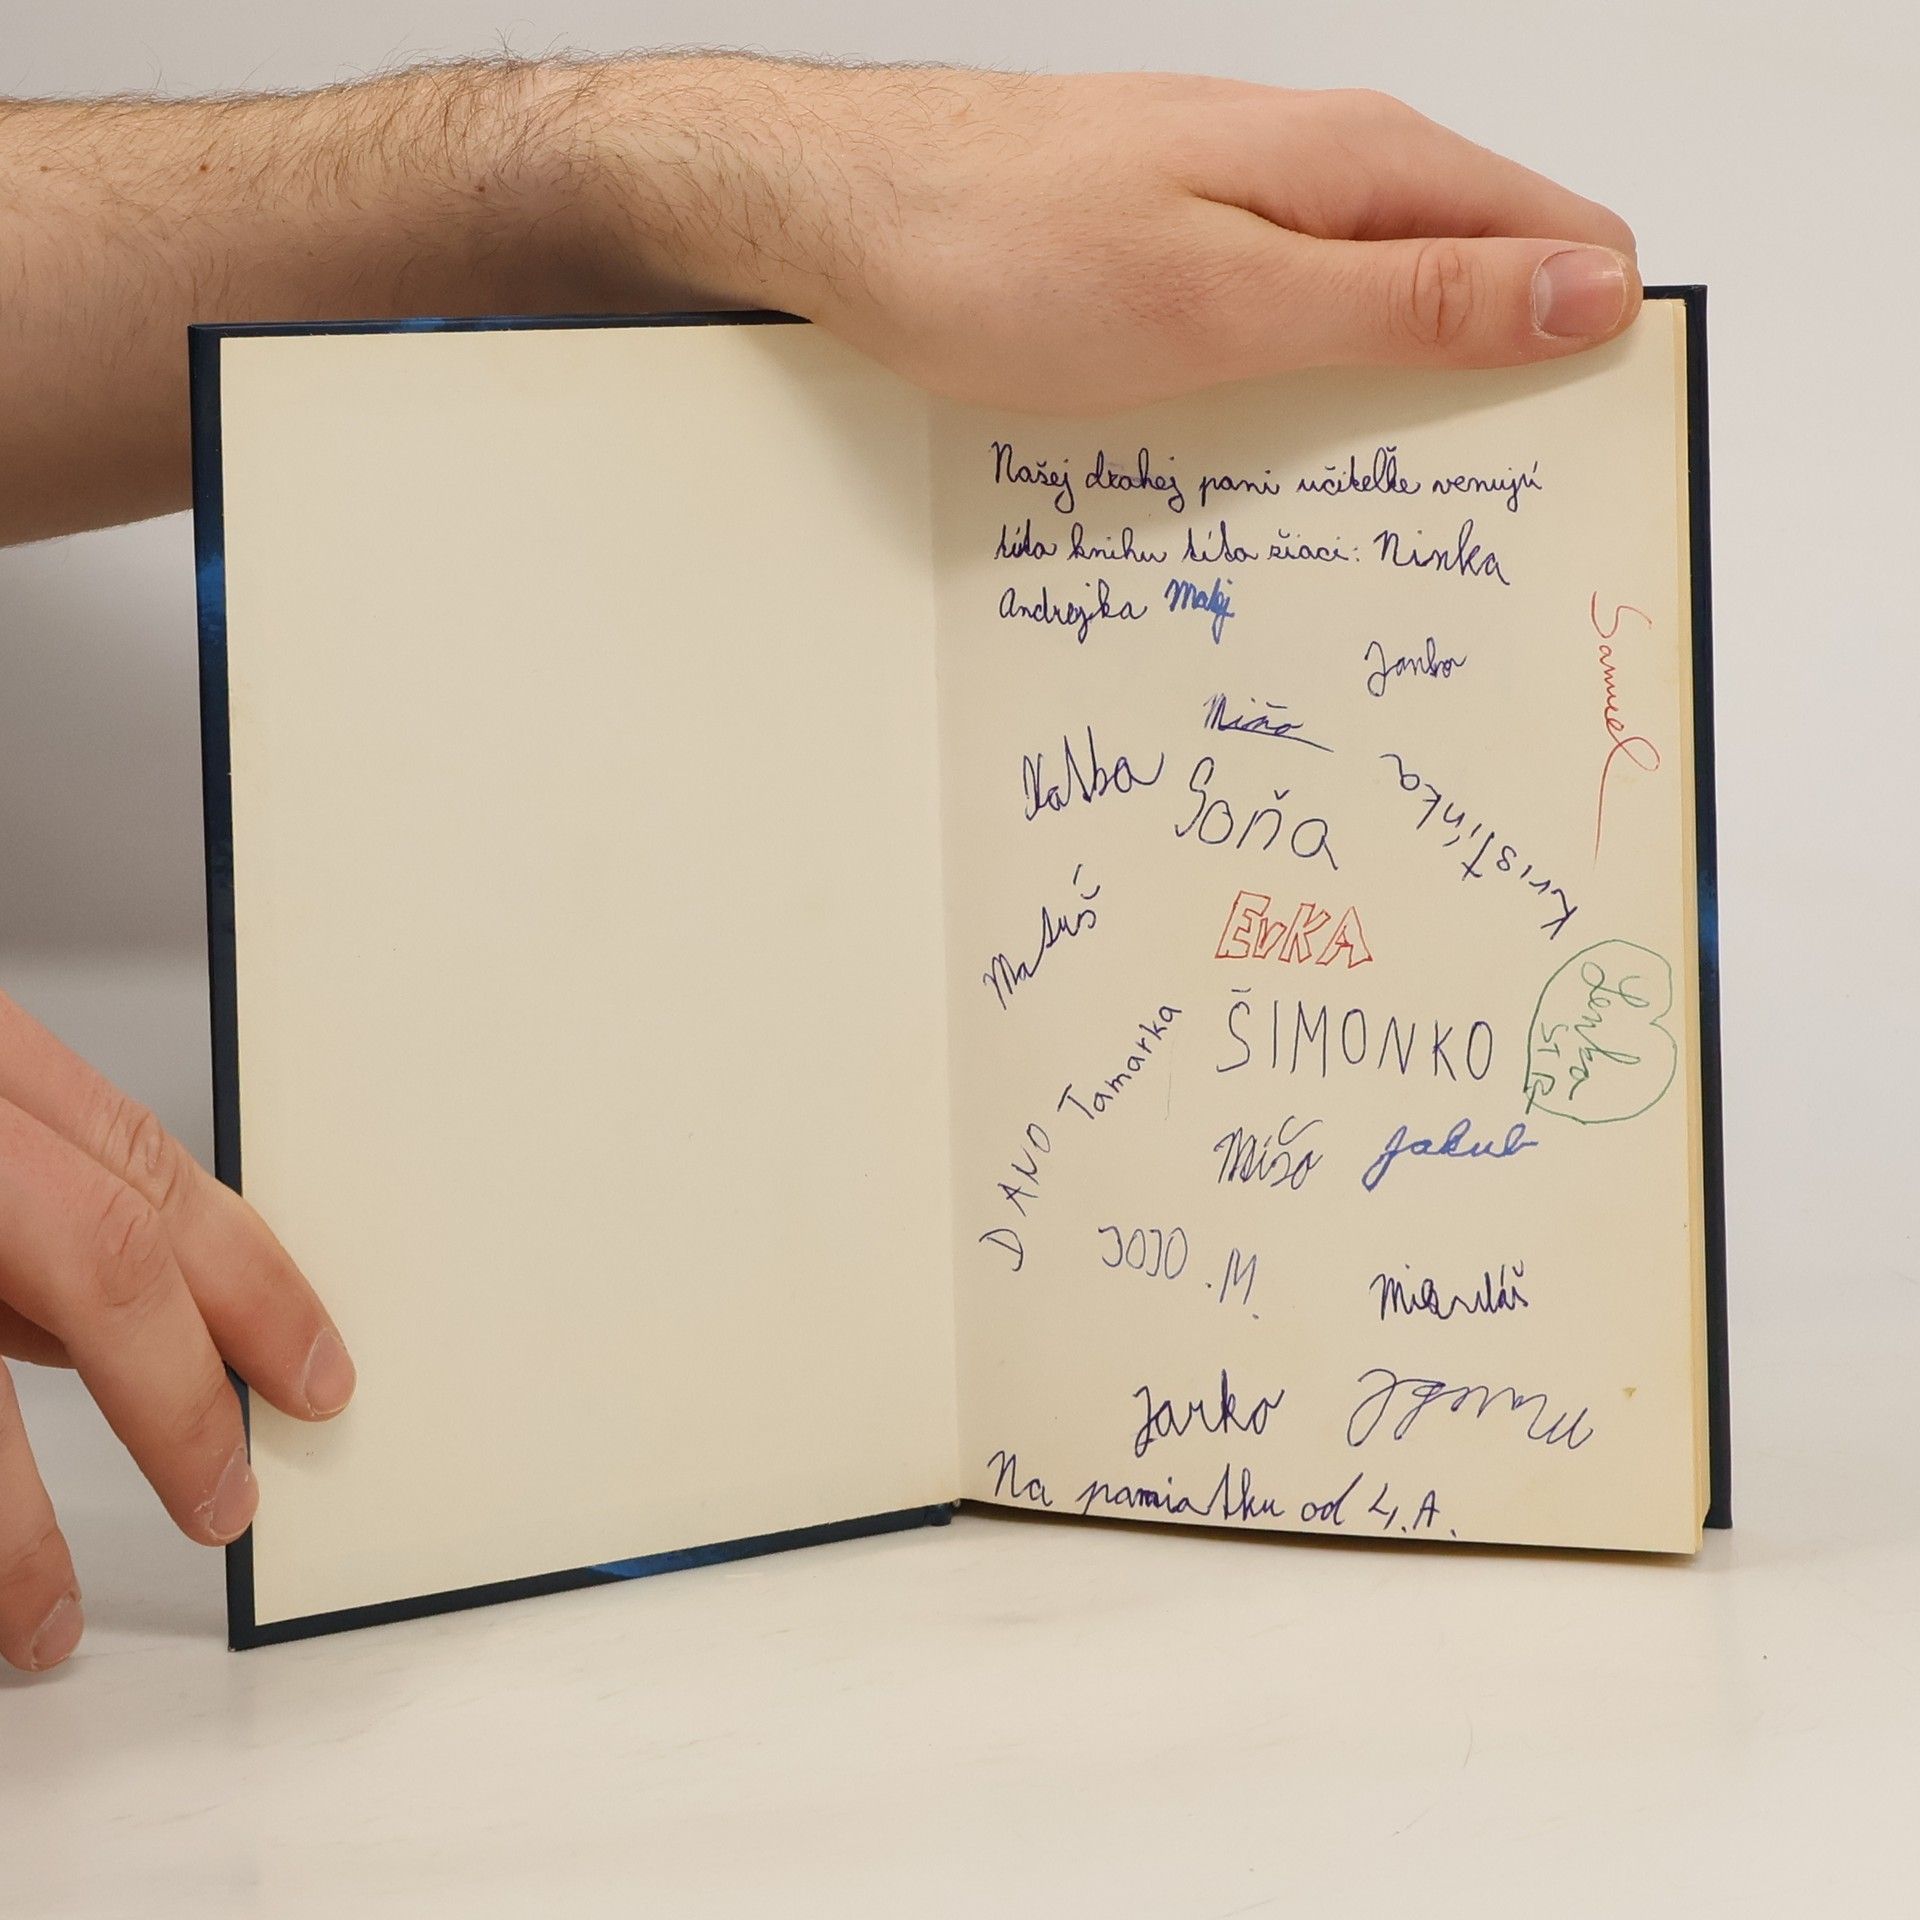 Našej drahej pani učiteľke venujú
túto knihu títo žiaci: Ninka
Andrejka Matej
Janka
Samuel
Miňo
Katka
Soňa
Kristínka
Matúš
EvKA
ŠIMONKO
Lenka
Tamarka
DANO
Mišo
Jakub
JOJO.M.
Mikuláš
Jarko
Na pamiatku od 4.A.